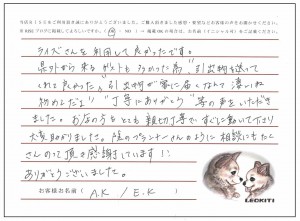 ライズさんを利用して良かったです。
県外から来るゲストも多かった為、"引出物を送って
くれて良かった" "引出物が家に届くなんて凄いね
初めてだよ" "丁寧にありがとう" 等の声をいただき
ました。お店の方もとても親切丁寧ですぐに動いて下さり
大変助かりました。陰のプランナーさんのように相談にもたく
さんのって頂き感謝しています!!
ありがとうございました。
お客様お名前( A.K / E.K )
LEOKITI